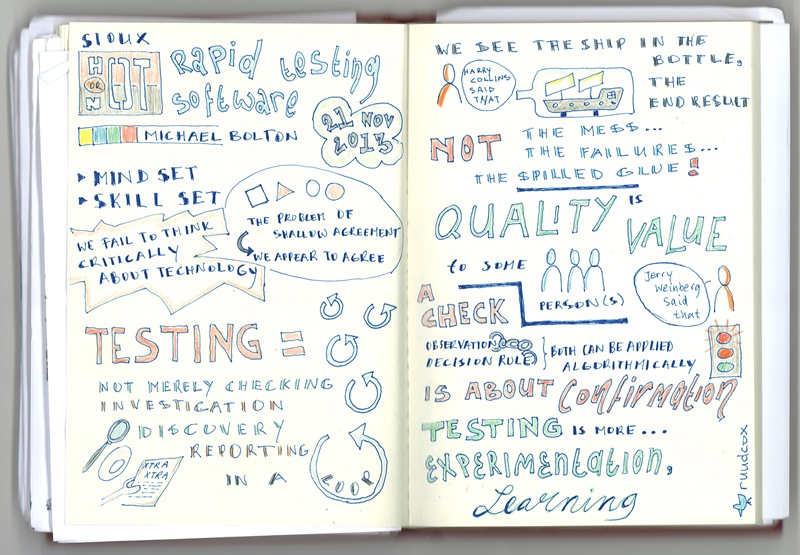 SIOUX
HOT
OR
NOT
Rapid testing
software
MICHAEL BOLTON
21 NOV
2013
MIND SET
SKILL SET
WE FAIL TO THINK
CRITICALLY
ABOUT TECHNOLOGY
THE PROBLEM OF
SHALLOW AGREEMENT
WE APPEAR TO AGREE
TESTING =
NOT MERELY CHECKING
INVESTIGATION
DISCOVERY
REPORTING
IN A
LOOP
XTRA
XTRA
WE SEE THE SHIP IN THE
BOTTLE,
THE
END RESULT
HARRY
COLLINS
SAID
THAT
NOT
THE MESS...
THE FAILURES...
THE SPILLED GLUE!
QUALITY IS
VALUE
to SOME
PERSON(S)
Jerry
Weinberg
said
that
A
CHECK
OBSERVATION
DECISION RULE
BOTH CAN BE APPLIED
ALGORITHMICALLY
IS ABOUT Confirmation
TESTING IS MORE...
EXPERIMENtAtION,
Learning
ruudcox